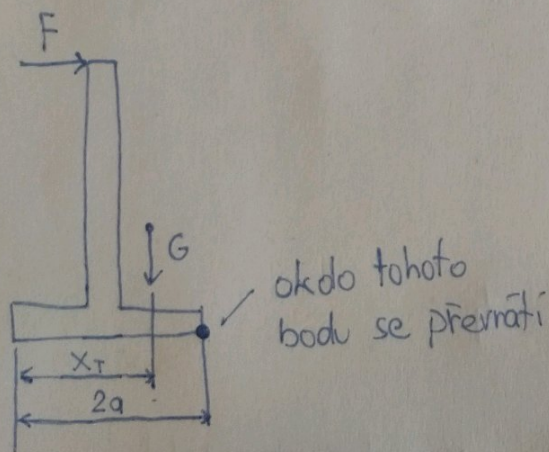 F
G
okdo tohoto
bodu se převrátí
x_T
2a